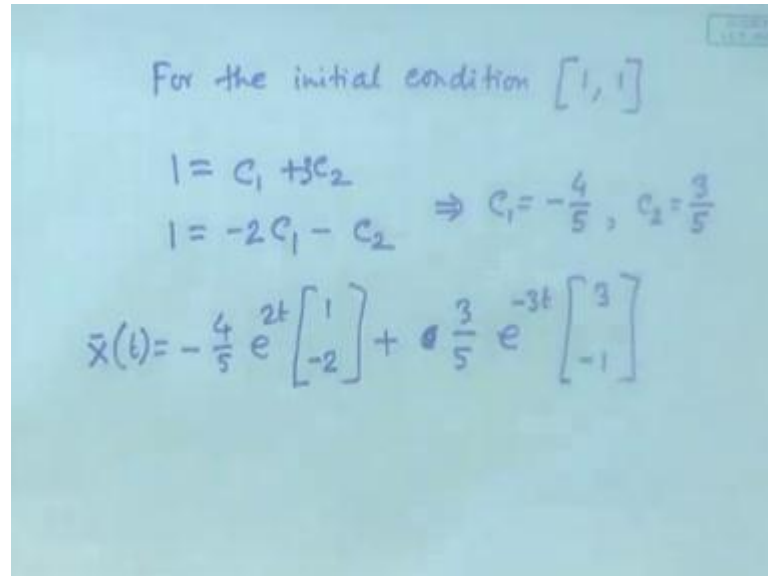 For the initial condition [1, 1]
1 = C₁ + 3C₂
1 = -2C₁ - C₂ ⇒ C₁ = -4/5, C₂ = 3/5
x̄(t) = -4/5 e^{2t} [1 -2] + 3/5 e^{-3t} [3 -1]